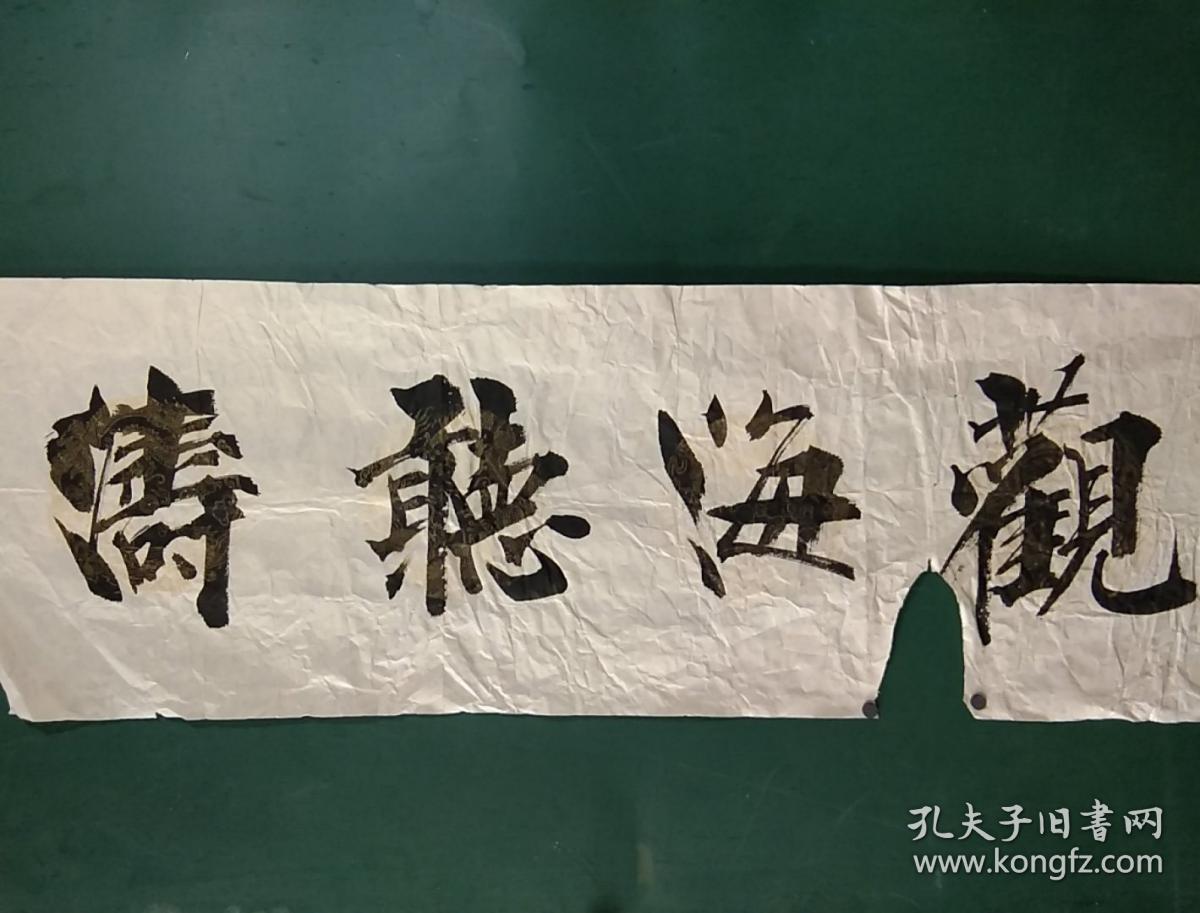 觀海聽濤
孔夫子旧書网
www.kongfz.com